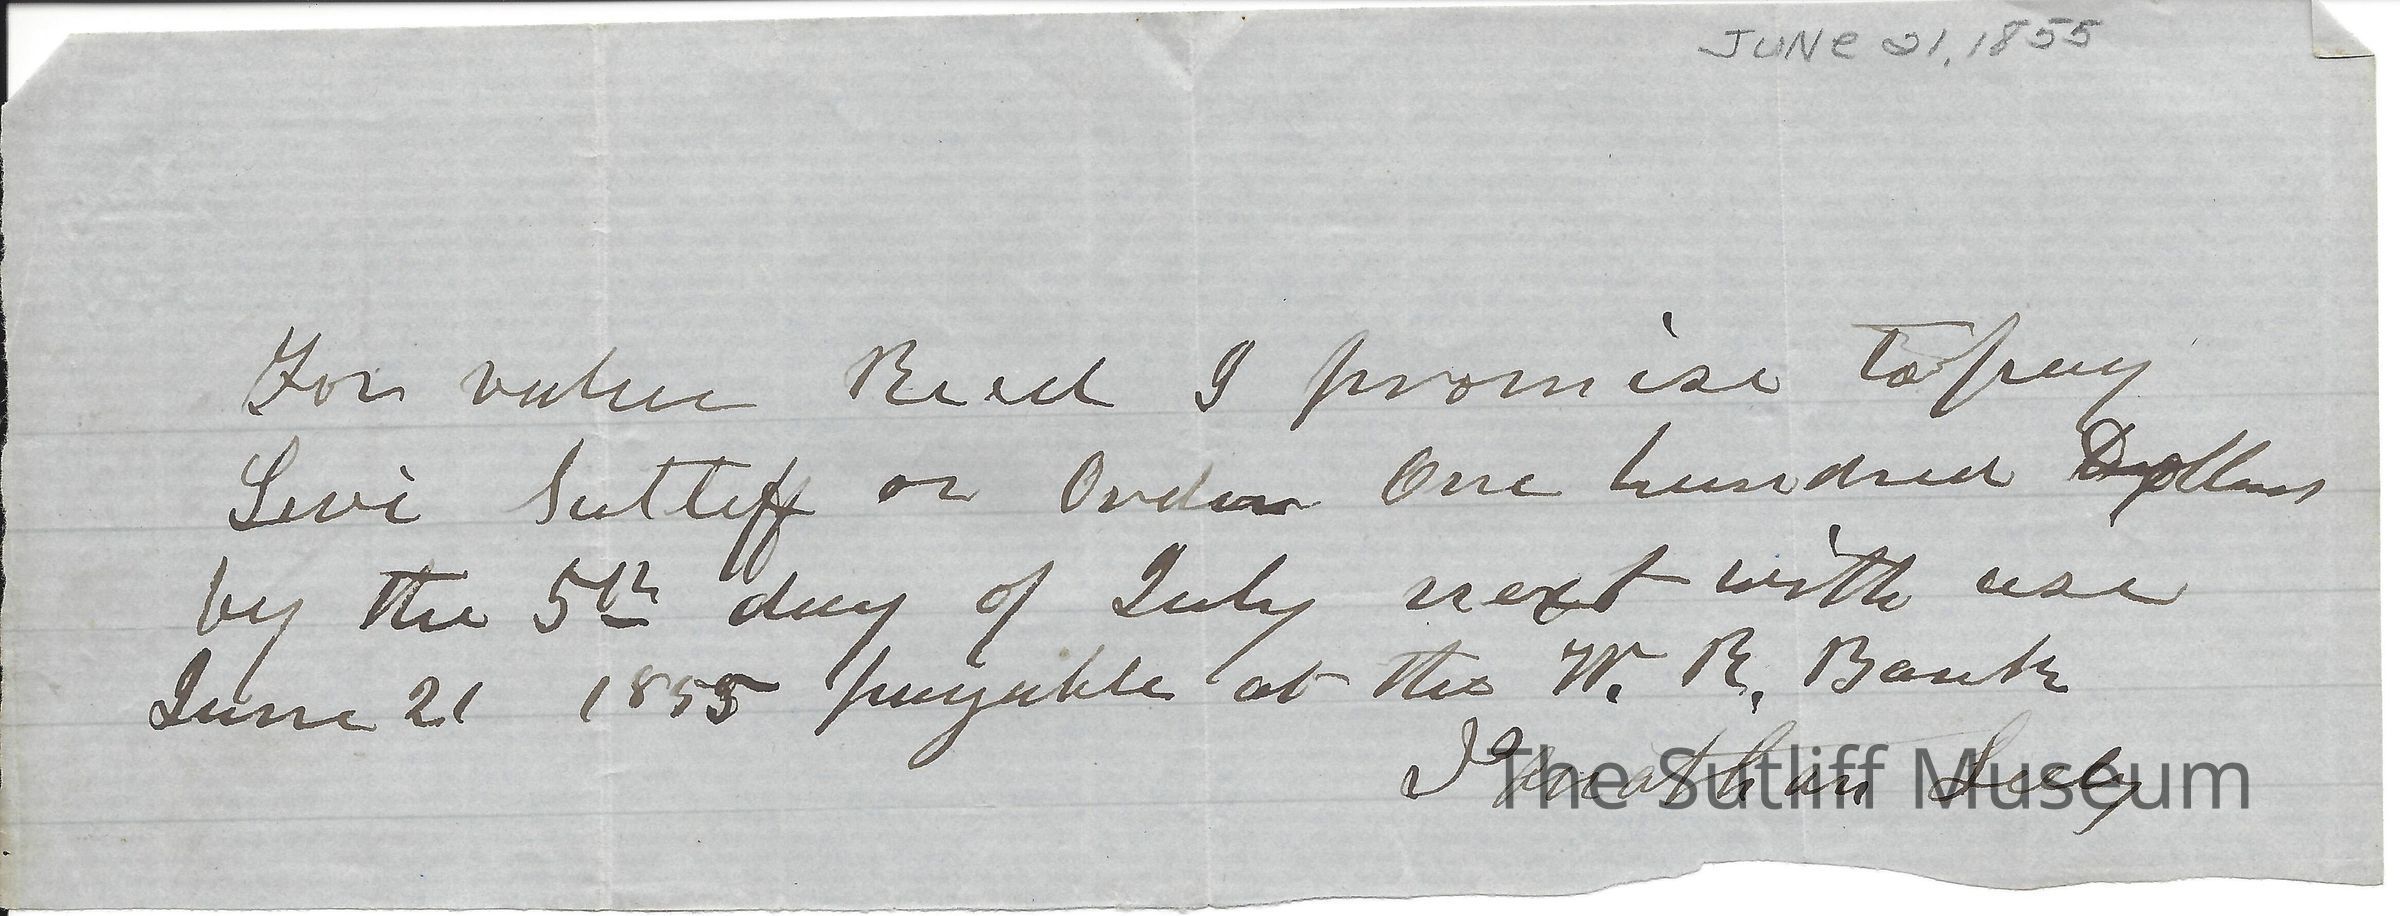 JUNE 21, 1855
For value Recd I promise to pay
Levi Sutliff or Order One hundred Dollars
by the 5th day of July next with use
June 21 1855 payable at the W. R. Bank
Jonathan Seely
The Sutliff Museum